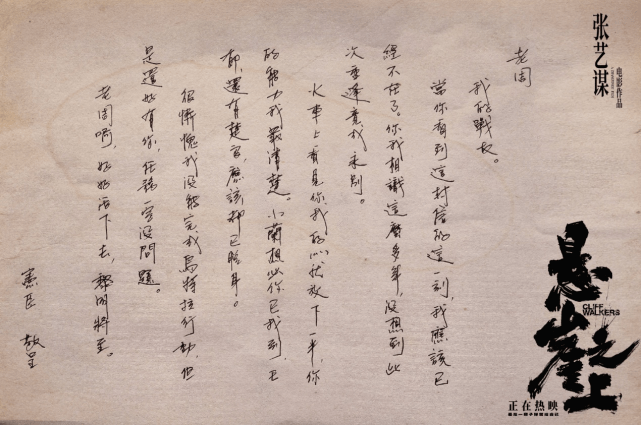 张艺谋
电影作品
老周
我的戰友。
當你看到這封信的這一刻，我應該已
經不在了。你我相識這麼多年，沒想到此
次重逢竟成永別。
火車上看見你我的心就放下一半，你
的能力我最清楚。小蘭想必你已找到，王
郁，還有楚良，應該都已
很慚愧我沒能完成烏特拉行動，但
是還好有你，任務一定沒問題。
老周啊，好好活下去，黎明將至。
憲臣 敬呈
悬崖之上
CLIFF
WALKERS
正在热映